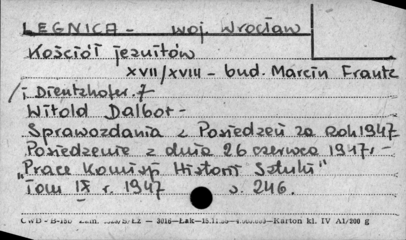 LEGNICA - woj. Wrocław
Kościół jezuitów
XVII/XVIII - bud. Marcin Frantz
/i Dientzhofer.?
Witold Dalbor -
Sprawozdania z Posiedzeń za rok 1947
Posiedzenie z dnia 26 czerwca 1947. -
„Prace Komisji Historii Sztuki"
Tom IX r. 1947 s. 246.
Karton kl. IV A1/200 g